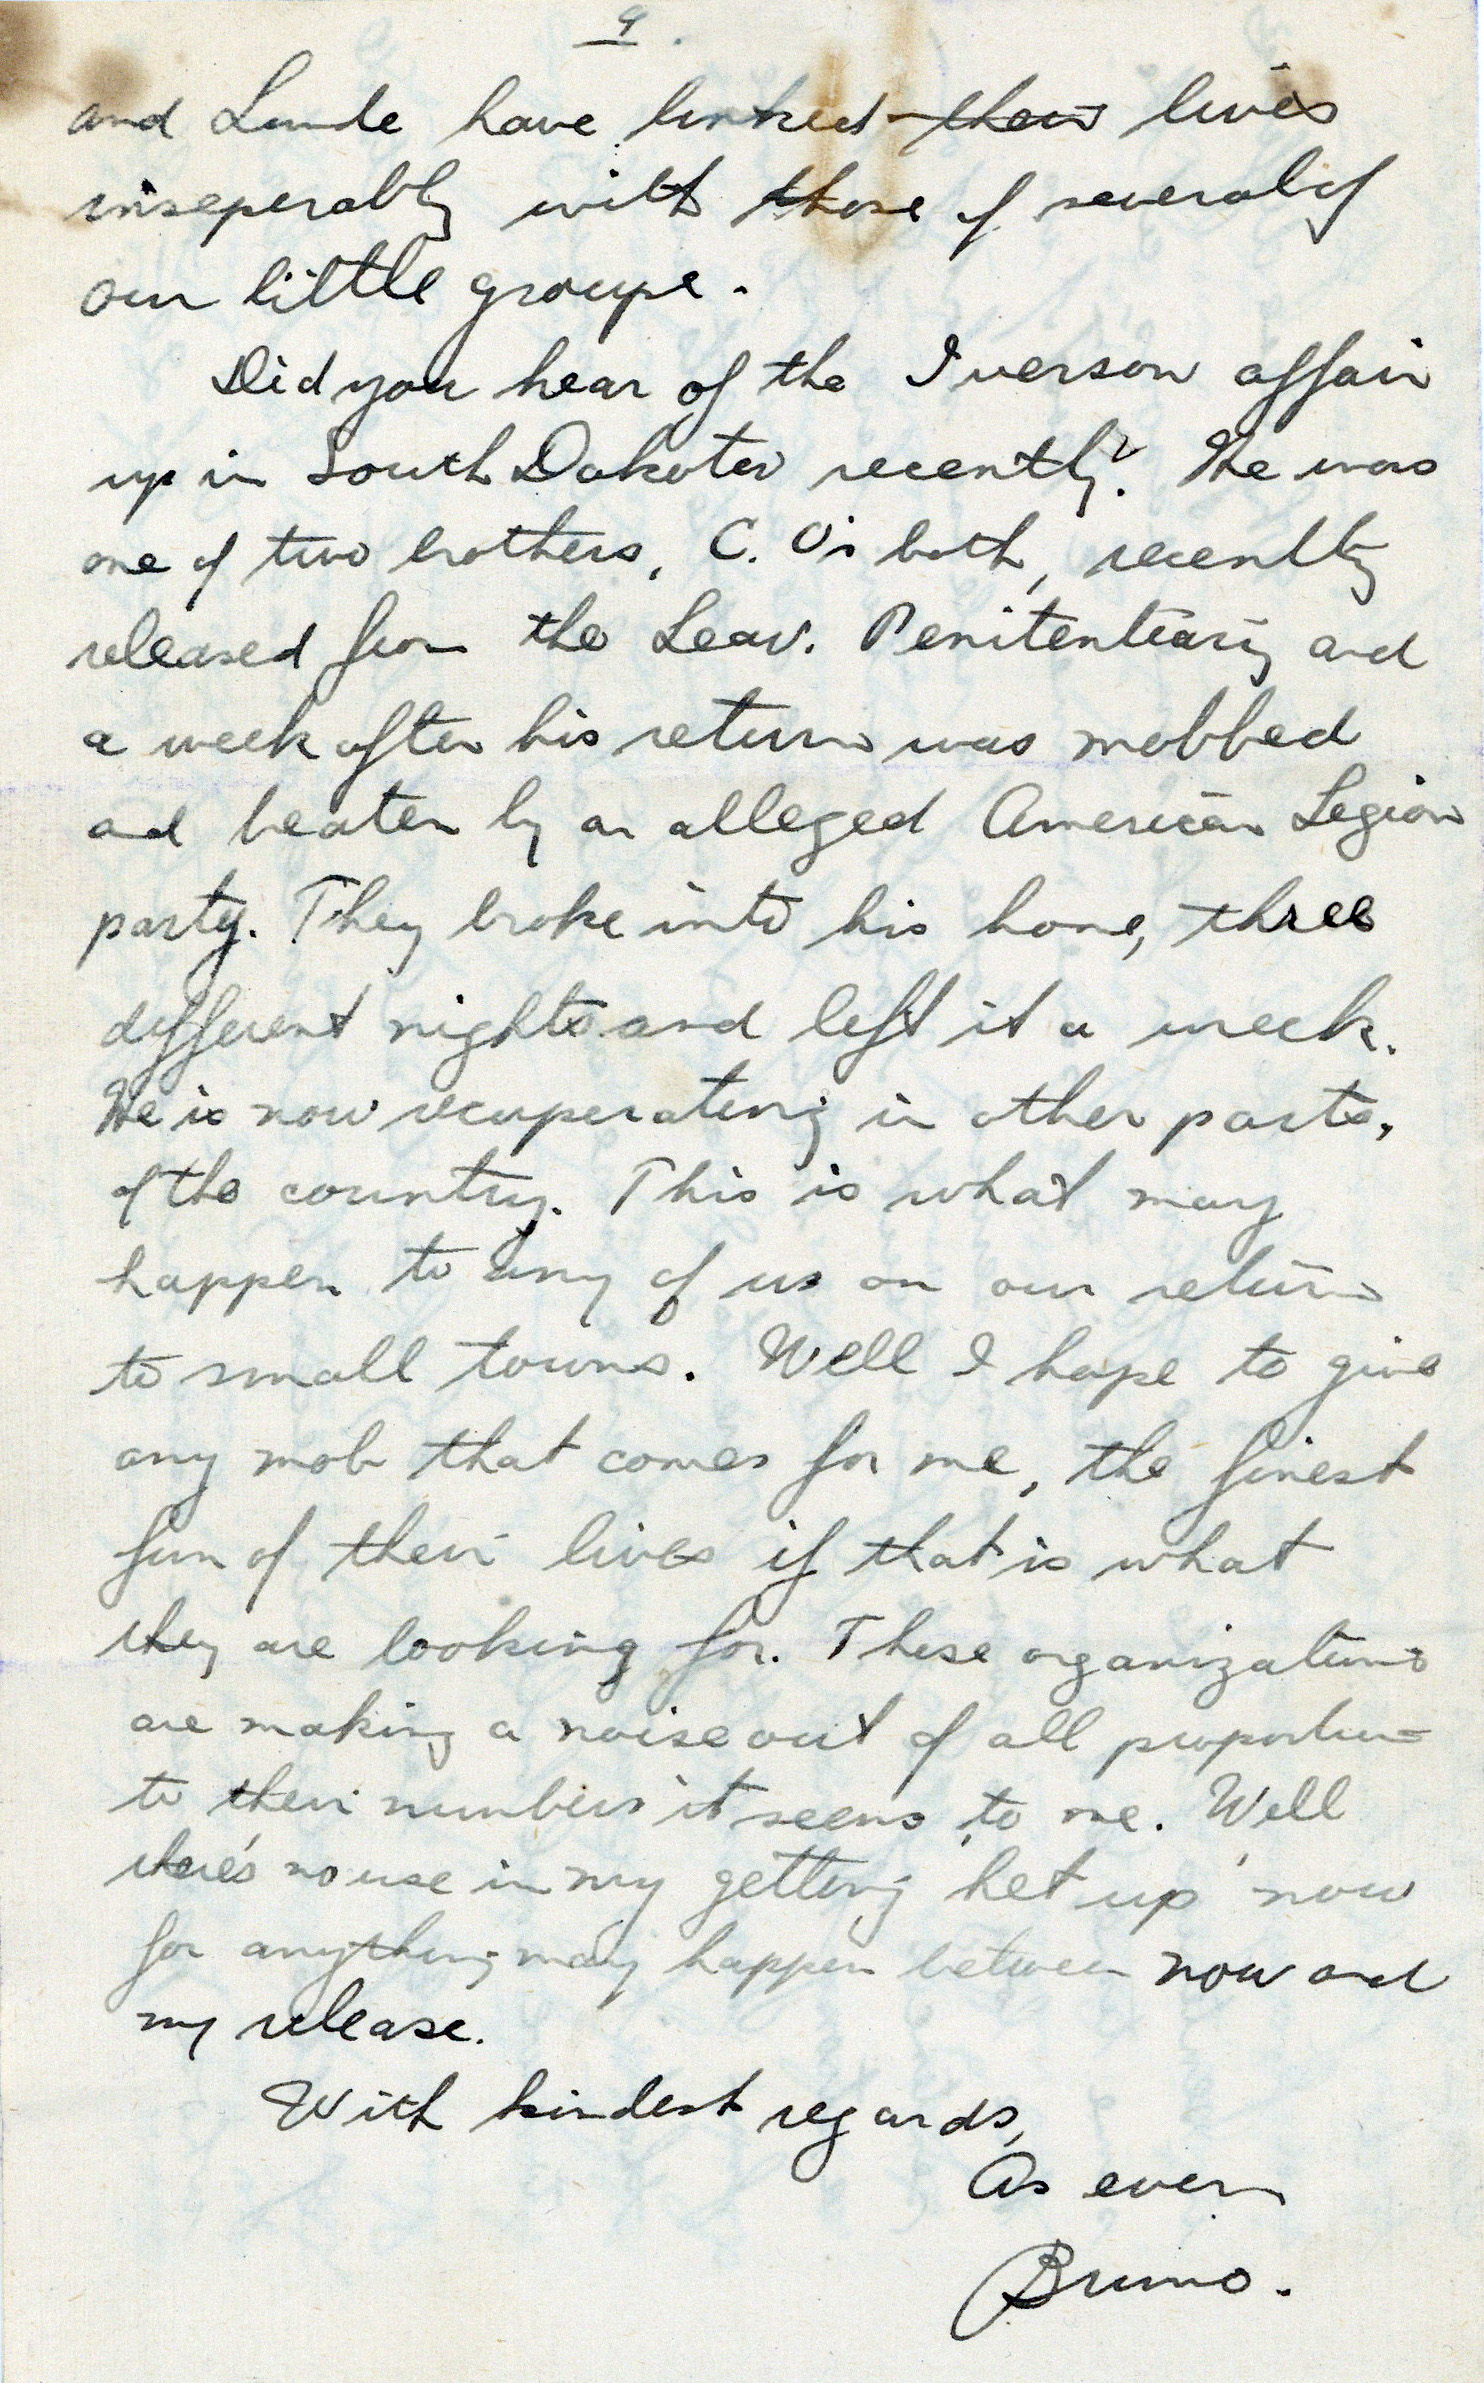 9.
and Lunde have linked their lives
inseperably with those of several of
our little groupe.
Did you hear of the Iverson affair
up in South Dakota recently? He was
one of two brothers, C. O's both, recently
released from the Leav. Penitentiary and
a week after his return was mobbed
and beaten by an alleged American Legion
party. They broke into his home, three
different nights and left it a wreck.
He is now recuperating in other parts,
of the country. This is what may
happen to any of us on our return
to small towns. Well I hope to give
any mob that comes for me, the finest
fun of their lives if that is what
they are looking for. These organizations
are making a noise out of all proportion
to their numbers it seems to me. Well
there's no use in my getting 'het up' now
for anything may happen between now and
my release.
With kindest regards,
As ever
Bruno.